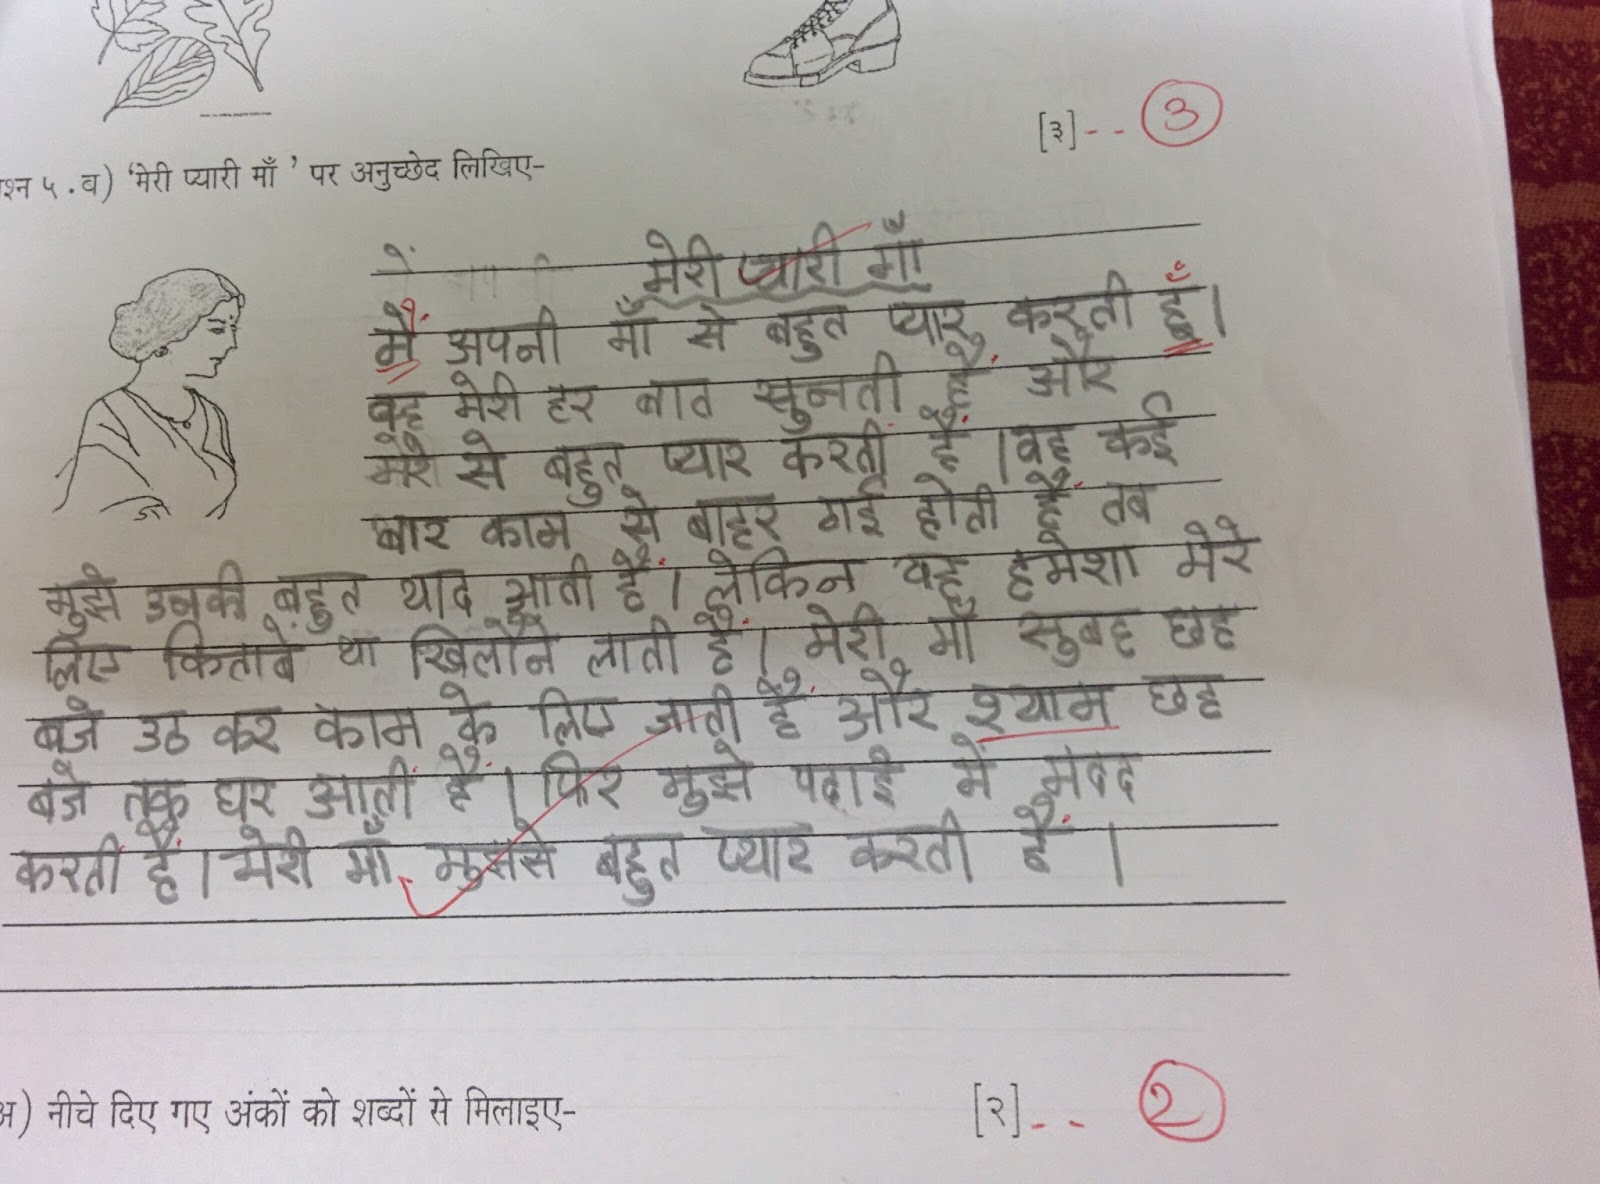 [३]-- 3
श्न ५.व) ‘मेरी प्यारी माँ ’ पर अनुच्छेद लिखिए-
मेरी प्यारी माँ
मैं अपनी माँ से बहुत प्यार करती हूँ।
वह मेरी हर बात सुनती हैं और
मेरे से बहुत प्यार करतीं हैं। वह कई
बार काम से बाहर गई होती हैं तब
मुझे उनकी बहुत याद आती हैं। लेकिन वह हमेशा मेरे
लिए किताबें या खिलौने लाती हैं। मेरी माँ सुबह छह
बजे उठ कर काम के लिए जाती हैं और श्याम छह
बजे तक घर आतीं हैं। फिर मुझे पढ़ाई में मदद
करतीं हैं। मेरी माँ मुझसे बहुत प्यार करती हैं।
अ) नीचे दिए गए अंकों को शब्दों से मिलाइए- [२]-- 2